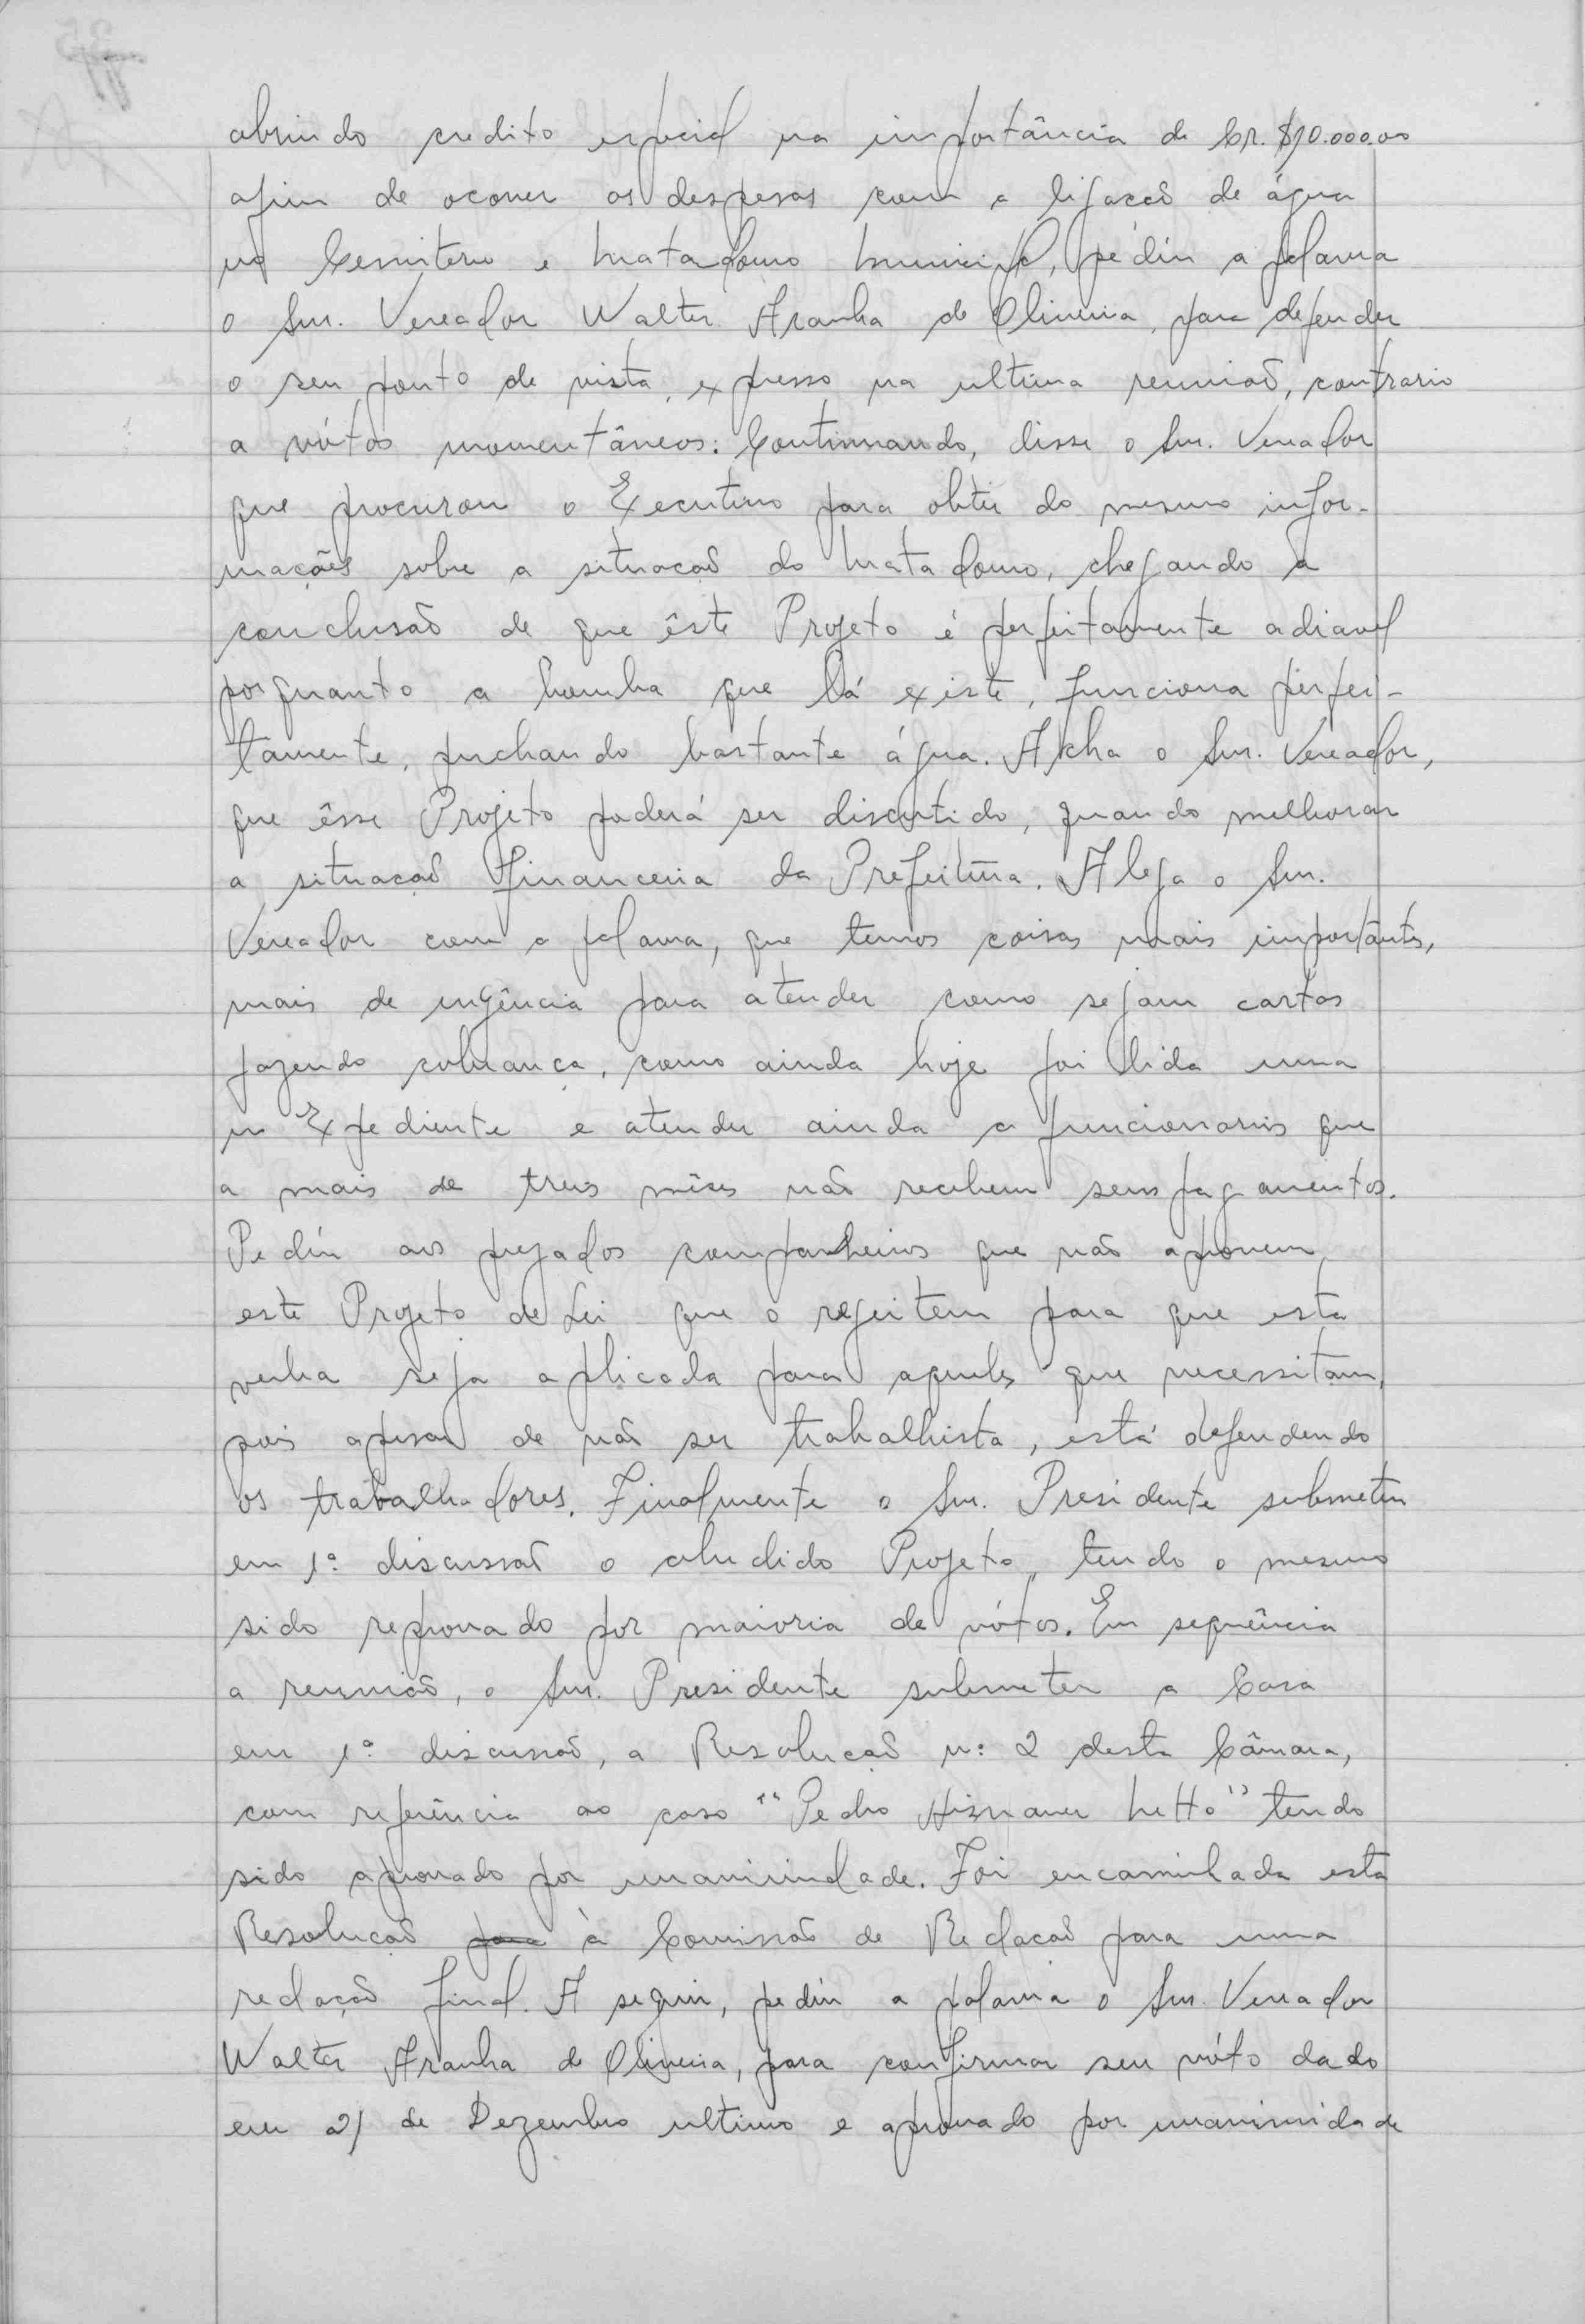 abrindo credito especial na importância de Cr. $10.000,00
afim de ocorrer as despesas com a ligação de água
no Cemiterio e Matadouro Municipal, pediu a palavra
o Snr. Vereador Walter Aranha de Oliveira, para defender
o seu ponto de vista, expresso na ultima reunião, contrario
a vótos momentâneos: Continuando, disse o Snr. Vereador
que procurou o Executivo para obter do mesmo infor-
mações sobre a situação do Matadouro, chegando a
conclusão de que êste Projeto é perfeitamente adiavel
porquanto a bomba que lá existe, funciona perfei-
tamente, puchando bastante água. Acha o Snr. Vereador,
que êsse Projeto poderá ser discutido, quando melhorar
a situação financeira da Prefeitura. Alega o Snr.
Vereador com a palavra, que temos coisas mais importântes,
mais de urgência para atender como sejam cartas
fazendo cobrança, como ainda hoje foi lida uma
no Expediente e atender ainda a funcionarios que
a mais de treis mêses não recebem seus pagamentos.
Pediu aos prezados companheiros que não aprovem
este Projeto de Lei que o regeitem para que esta
verba seja aplicada para aqueles que necessitam,
pois apesar de não ser trabalhista, está defendendo
os trabalhadores. Finalmente o Snr. Presidente submeteu
em 1ª discussão o aludido Projeto, tendo o mesmo
sido reprovado por maioria de vótos. Em sequência
a reunião, o Snr. Presidente submeteu a Casa
em 1ª discussão, a Resolução nº 2 desta Câmara,
com referência ao caso "Pedro Netto" tendo
sido aprovado por unanimidade. Foi encaminhada esta
Resolução para à Comissão de Redação para uma
redação final. A seguir, pediu a palavra o Snr. Vereador
Walter Aranha de Oliveira, para confirmar seu vóto dado
em 21 de Dezembro ultimo e aprovado por unanimidade